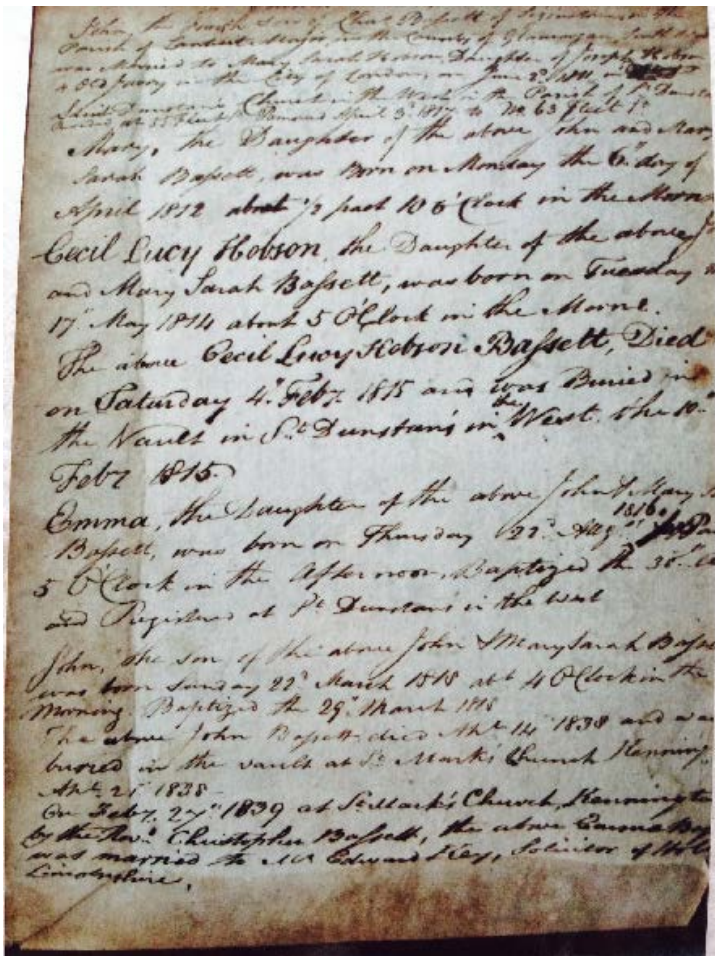 John, the fourth Son of Chas. Bassett of in the
Parish of Lantwit Major, in the County of Glamorgan, South
was Married to Mary Sarah Hobson, Daughter of Joseph Hobson
Old Jewry in the City of London, on June 2d. 1811, in
Saint Dunstan's Church in the West, in the Parish of St. Dunstan
at 55 Fleet St. Removed April 3d. to No. 63 Fleet St.
Mary, the Daughter of the above John and Mary
Sarah Bassett, was Born on Monday the 6th. day of
April 1812 about ½ past 10 O'Clock in the Morn
Cecil Lucy Hobson, the Daughter of the above
and Mary Sarah Bassett, was born on Tuesday
17th. May 1814 about 5 O'Clock in the Morne.
The above Cecil Lucy Hobson Bassett, Died
on Saturday 4th. Feby. 1815 and was Buried in
the Vault in St. Dunstan's in the West. the 10th.
Feby 1815.
Emma, the Daughter of the above John & Mary
Bassett, was born on Thursday 22d. Augst. 1816.
5 O'Clock in the Afternoon, Baptized the
and Registered at St. Dunstan's in the West
John, the son, of the above John & Mary Sarah
was born Sunday 22d. March 1818 abt. 4 O'Clock in the
Morning, Baptized the 29th. March 1818
The above John Bassett died 14th 1838 and was
buried in the vault at St. Mark's Church
21st 1838
On Feby. 27th. 1839 at St. Mark's Church, Kennington
by the Revd. Christopher Bassett, the above Emma
was married to Mr. Edward Key, Solicitor of
Lincolnshire.